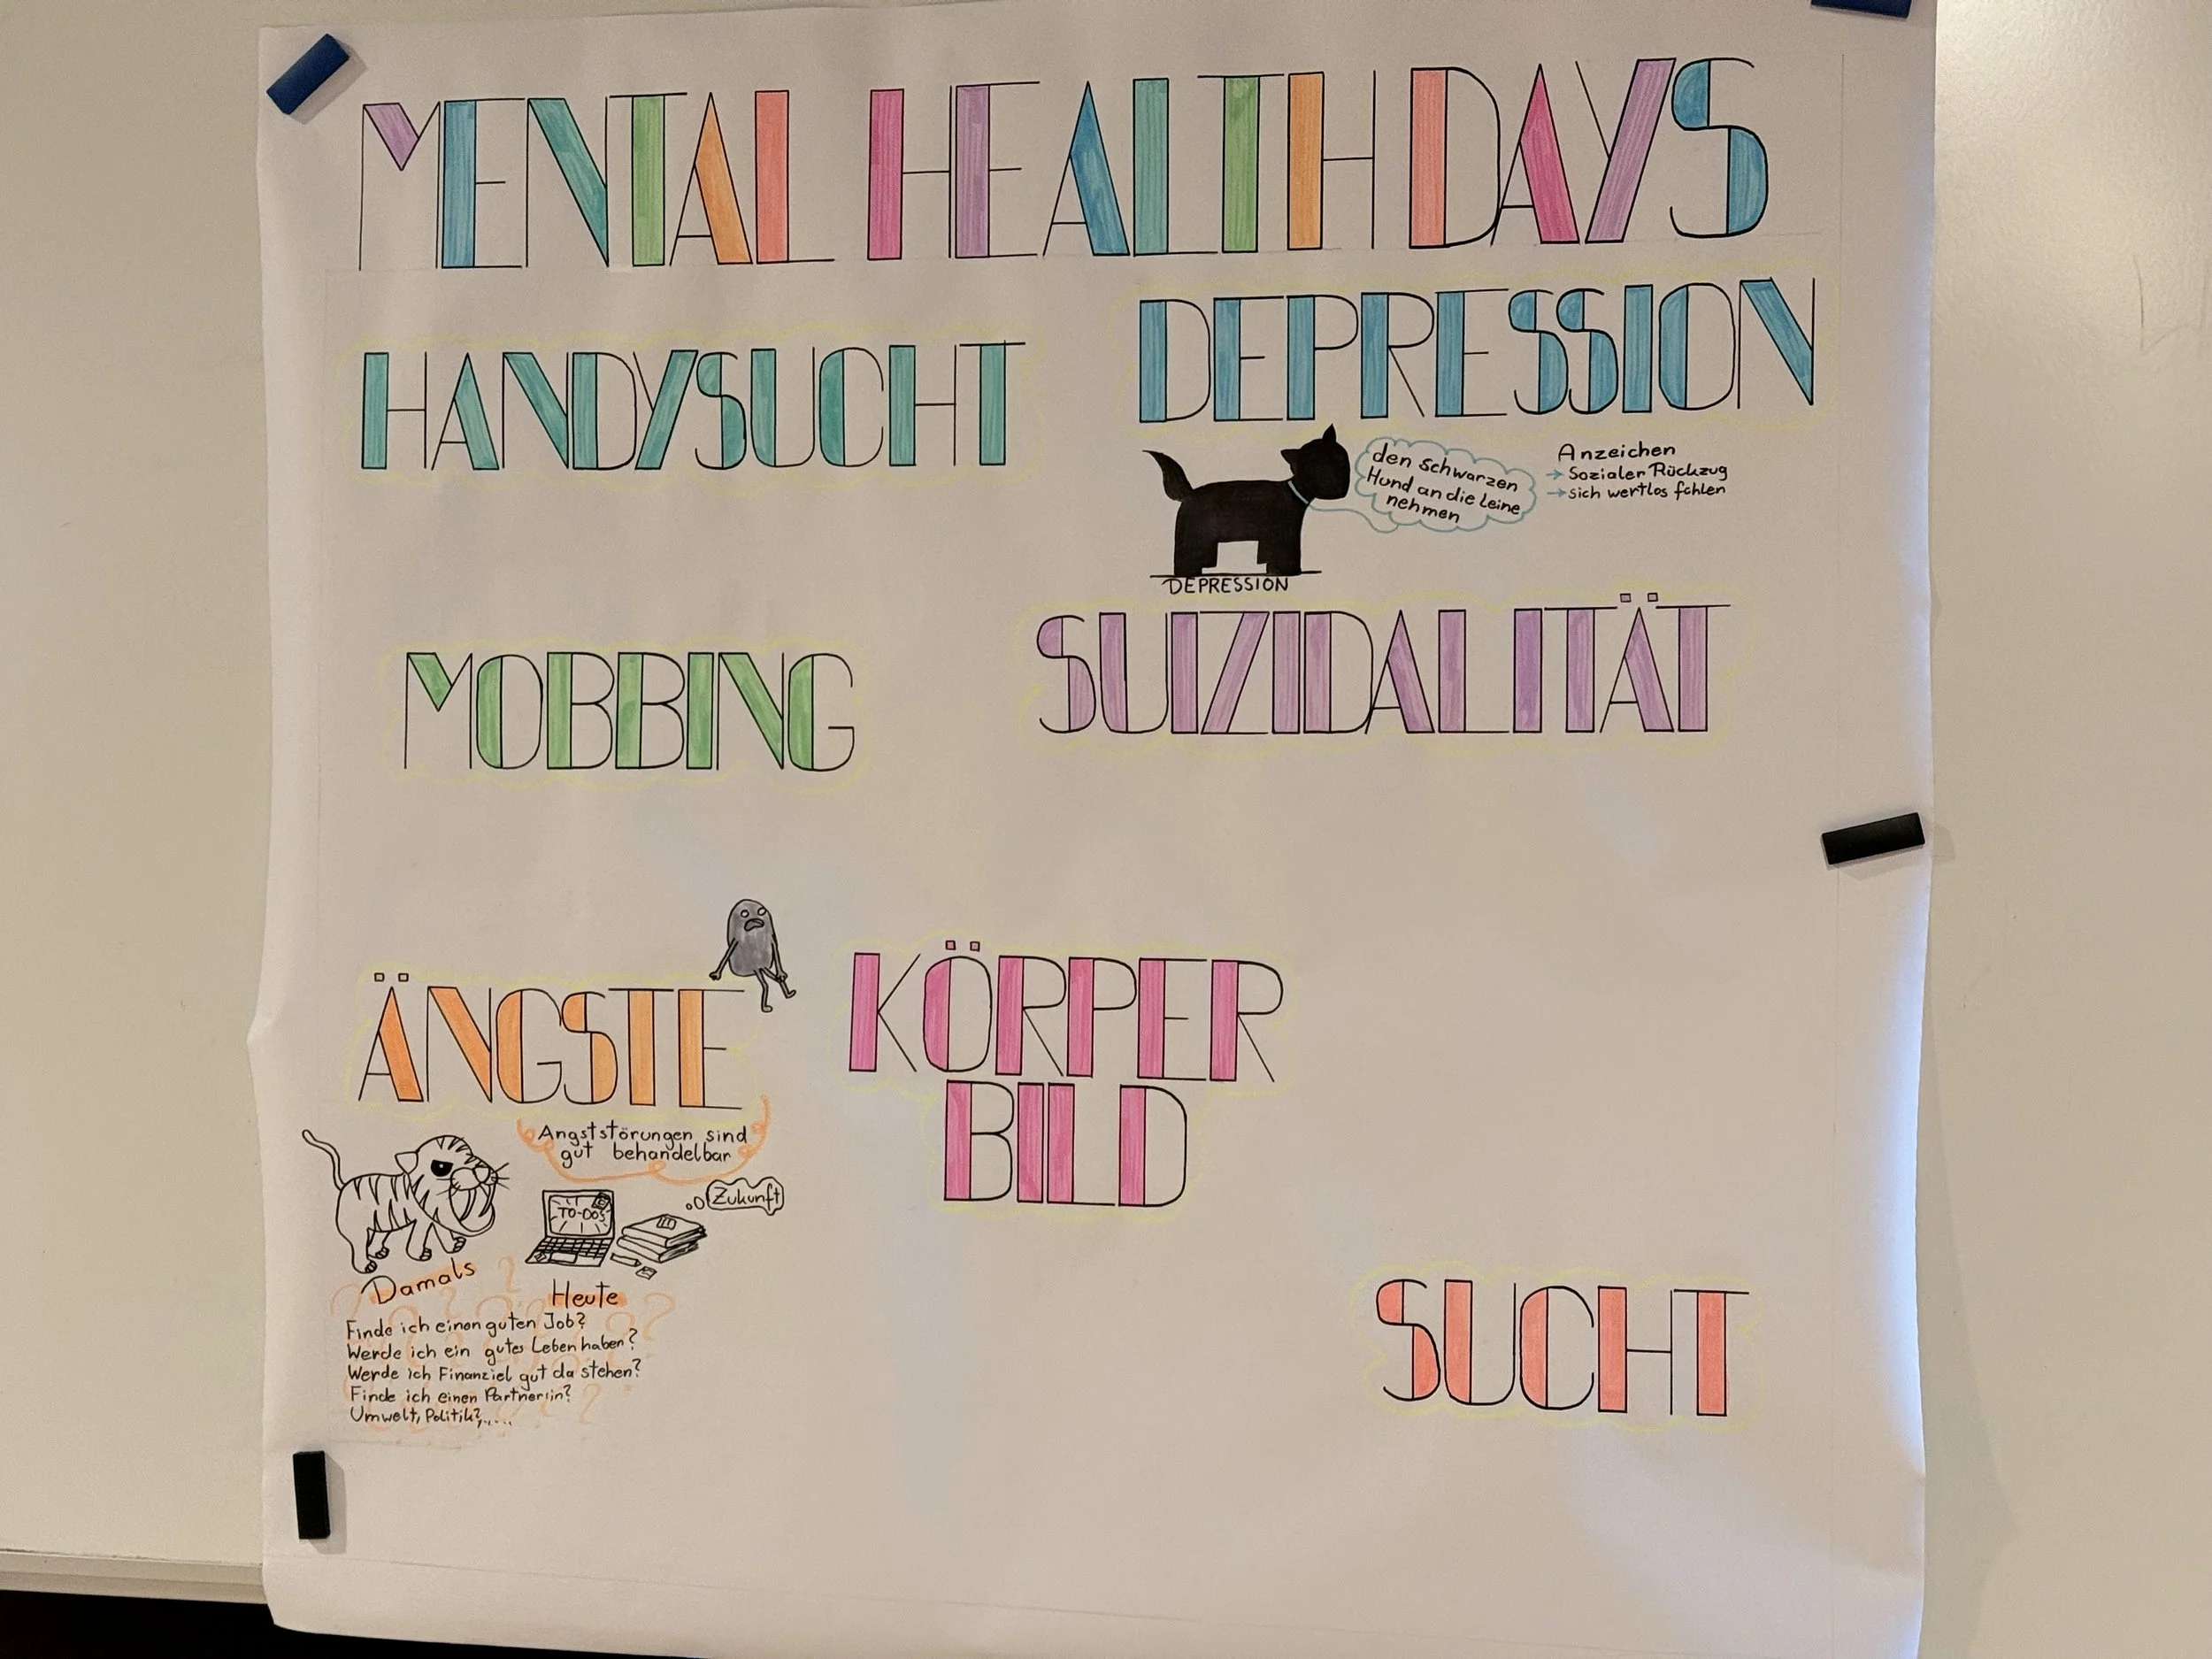 MENTAL HEALTH DAYS
HANDYSUCHT
DEPRESSION
den schwarzen
Hund an die Leine
nehmen
Anzeichen
→ Sozialer Rückzug
→ sich wertlos fühlen
DEPRESSION
MOBBING
SUIZIDALITÄT
ÄNGSTE
Angststörungen sind
gut behandelbar
TO-DOS
Zukunft
Damals
Heute
Finde ich einen guten Job?
Werde ich ein gutes Leben haben?
Werde ich Finanziel gut da stehen?
Finde ich einen Partner:in?
Umwelt, Politik?,....
KÖRPER
BILD
SUCHT